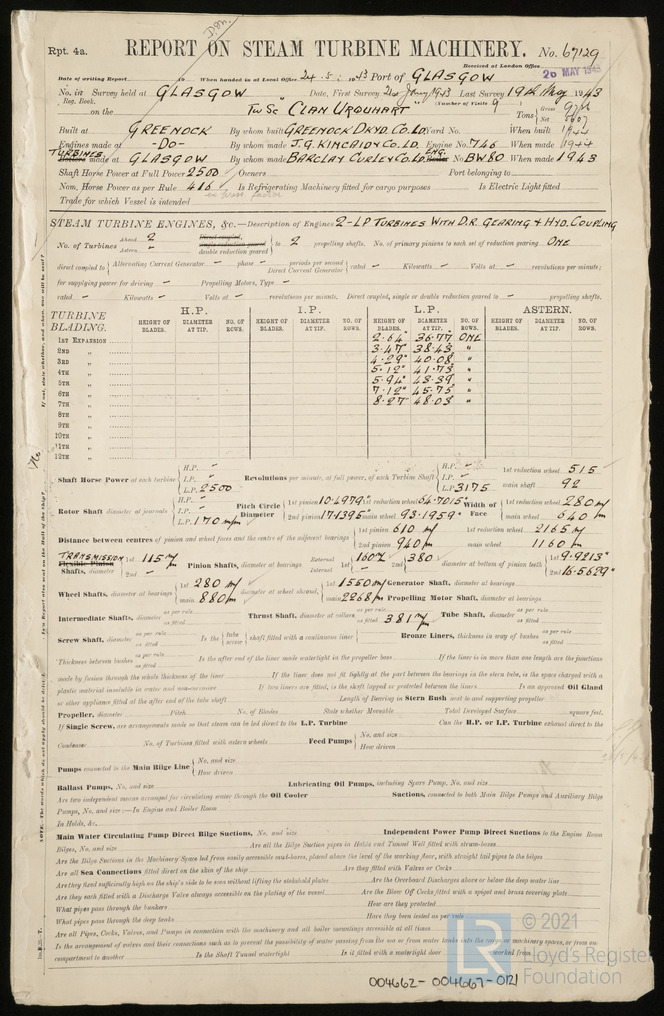 Rpt. 4a.
REPORT ON STEAM TURBINE MACHINERY. No. 67129
Received at London Office
26 MAY 1943
Date of writing Report 19 When handed in at Local Office 24. 5. 1943 Port of GLASGOW
No. in Survey held at GLASGOW Date, First Survey Last Survey 19th May 1943
Reg. Book. (Number of Visits 9)
on the Tw Sc "CLAN URQUHART" Tons Gross
Net
Built at GREENOCK By whom built GREENOCK DKYD. CO. LD. Yard No. When built 1944
Engines made at -DO- By whom made J.G. KINCAID & CO. LD. Engine No. 746 When made 1944
TURBINES made at GLASGOW By whom made BARCLAY CURLE & CO. LD. ENG. No. BW80 When made 1943
Shaft Horse Power at Full Power 2500 Owners Port belonging to
Nom. Horse Power as per Rule 416 Is Refrigerating Machinery fitted for cargo purposes Is Electric Light fitted
Trade for which Vessel is intended
STEAM TURBINE ENGINES, &c.—Description of Engines 2-LP TURBINES WITH D.R. GEARING & HYD. COUPLING
No. of Turbines Ahead 2 Direct coupled, single reduction geared to 2 propelling shafts. No. of primary pinions to each set of reduction gearing ONE
Astern - double reduction geared
direct coupled to Alternating Current Generator - phase - periods per second rated - Kilowatts - Volts at - revolutions per minute;
Direct Current Generator
for supplying power for driving - Propelling Motors, Type -
rated - Kilowatts - Volts at - revolutions per minute. Direct coupled, single or double reduction geared to - propelling shafts.
TURBINE BLADING. H.P. I.P. L.P. ASTERN.
HEIGHT OF BLADES. DIAMETER AT TIP. NO. OF ROWS. HEIGHT OF BLADES. DIAMETER AT TIP. NO. OF ROWS. HEIGHT OF BLADES. DIAMETER AT TIP. NO. OF ROWS. HEIGHT OF BLADES. DIAMETER AT TIP. NO. OF ROWS.
1ST EXPANSION 2.64" 36.77 ONE
2ND " 3.47" 38.43 "
3RD " 4.29" 40.08 "
4TH " 5.12" 41.73 "
5TH " 5.94" 43.39 "
6TH " 7.12" 45.75 "
7TH " 8.27 48.03 "
8TH "
9TH "
10TH "
11TH "
12TH "
Shaft Horse Power at each turbine H.P. - I.P. - L.P. 2500 Revolutions per minute, at full power, of each Turbine Shaft H.P. - I.P. - L.P. 3175 1st reduction wheel 515
main shaft 92
Rotor Shaft diameter at journals H.P. - I.P. - L.P. 170 m/m Pitch Circle Diameter 1st pinion 10.4979 1st reduction wheel 64.7015" Width of Face 1st reduction wheel 280 m/m
2nd pinion 17.1395 main wheel 93.1959" main wheel 640 m/m
Distance between centres of pinion and wheel faces and the centre of the adjacent bearings 1st pinion 610 m/m 1st reduction wheel 2165 m/m
2nd pinion 940 m/m main wheel 1160 m/m
TRANSMISSION Flexible Pinion Shafts, diameter 1st 115 m/m 2nd - Pinion Shafts, diameter at bearings External 1st 160 m/m 2nd 380 diameter at bottom of pinion teeth 1st 9.9213"
Internal 1st - 2nd 16.5629"
Wheel Shafts, diameter at bearings 1st 280 m/m main 880 m/m diameter at wheel shroud, 1st 1550 m/m main 2268 m/m Generator Shaft, diameter at bearings
Propelling Motor Shaft, diameter at bearings
Intermediate Shafts, diameter as per rule as fitted Thrust Shaft, diameter at collars as per rule as fitted 381 m/m Tube Shaft, diameter as per rule as fitted
Screw Shaft, diameter as per rule as fitted Is the tube screw shaft fitted with a continuous liner Bronze Liners, thickness in way of bushes as per rule as fitted
Thickness between bushes as per rule as fitted Is the after end of the liner made watertight in the propeller boss If the liner is in more than one length are the junctions
made by fusion through the whole thickness of the liner If the liner does not fit tightly at the part between the bearings in the stern tube, is the space charged with a
plastic material insoluble in water and non-corrosive If two liners are fitted, is the shaft lapped or protected between the liners Is an approved Oil Gland
or other appliance fitted at the after end of the tube shaft Length of Bearing in Stern Bush next to and supporting propeller
Propeller, diameter Pitch No. of Blades State whether Moveable Total Developed Surface square feet.
If Single Screw, are arrangements made so that steam can be led direct to the L.P. Turbine Can the H.P. or I.P. Turbine exhaust direct to the
Condenser No. of Turbines fitted with astern wheels Feed Pumps No. and size
How driven
Pumps connected to the Main Bilge Line No. and size
How driven
Ballast Pumps, No. and size Lubricating Oil Pumps, including Spare Pump, No. and size
Are two independent means arranged for circulating water through the Oil Cooler Suctions, connected to both Main Bilge Pumps and Auxiliary Bilge
Pumps, No. and size:—In Engine and Boiler Room
In Holds, &c.
Main Water Circulating Pump Direct Bilge Suctions, No. and size Independent Power Pump Direct Suctions to the Engine Room
Bilges, No. and size Are all the Bilge Suction pipes in Holds and Tunnel Well fitted with strum-boxes
Are the Bilge Suctions in the Machinery Space led from easily accessible mud-boxes, placed above the level of the working floor, with straight tail pipes to the bilges
Are all Sea Connections fitted direct on the skin of the ship Are they fitted with Valves or Cocks
Are they fixed sufficiently high on the ship's side to be seen without lifting the stokehold plates Are the Overboard Discharges above or below the deep water line
Are they each fitted with a Discharge Valve always accessible on the plating of the vessel Are the Blow Off Cocks fitted with a spigot and brass covering plate
What pipes pass through the bunkers How are they protected
What pipes pass through the deep tanks Have they been tested as per rule
Are all Pipes, Cocks, Valves, and Pumps in connection with the machinery and all boiler mountings accessible at all times
Is the arrangement of valves and their connections such as to prevent the possibility of water passing from the sea or from water tanks into the cargo or machinery spaces, or from one
compartment to another Is the Shaft Tunnel watertight Is it fitted with a watertight door worked from
© 2021
Lloyd's Register
Foundation
004662-004667-0121